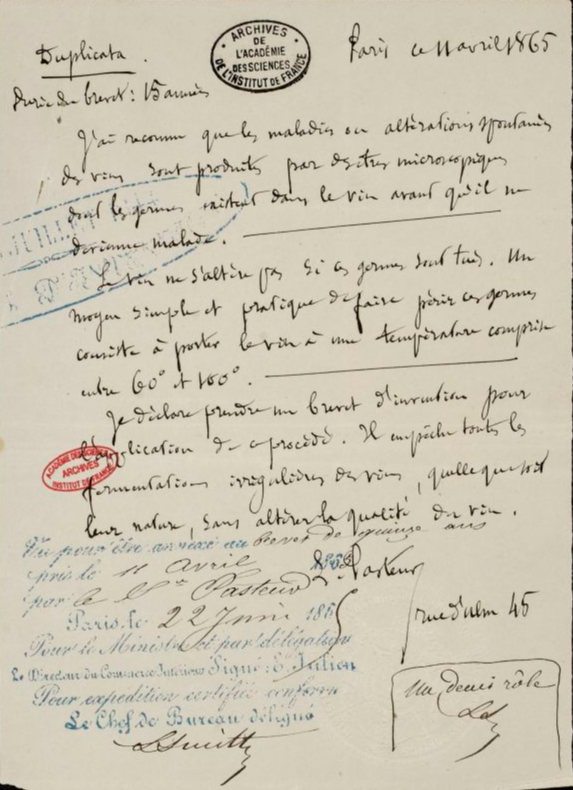 Duplicata.
ARCHIVES
DE
L'ACADÉMIE
DES SCIENCES
DE L'INSTITUT DE FRANCE
Paris ce 11 avril 1865
Durée du brevet : 15 années
J'ai reconnu que les maladies ou altérations spontanées
des vins sont produites par des êtres microscopiques
dont les germes existent dans le vin avant qu'il ne
devienne malade.
JUILLET
Le vin ne s'altère pas si ces germes sont tués. Un
moyen simple et pratique de faire périr ces germes
consiste à porter le vin à une température comprise
entre 60° et 100°.
Je déclare prendre un brevet d'invention pour
l'application de ce procédé. Il empêche toutes les
ACADÉMIE DES SCIENCES
ARCHIVES
INSTITUT DE FRANCE
fermentations irrégulières des vins, quelle que soit
leur nature, sans altérer la qualité du vin.
Vu pour être annexé au brevet de quinze ans
pris le 11 avril 1865
par le Sr Pasteur
L. Pasteur
rue d'Ulm 45
Paris, le 22 Juin 186
Pour le Ministre et par délégation
Le Directeur du Commerce Intérieur Signé: E. Julien
Pour expédition certifiée conforme
Le Chef de Bureau délégué
Un demi rôle